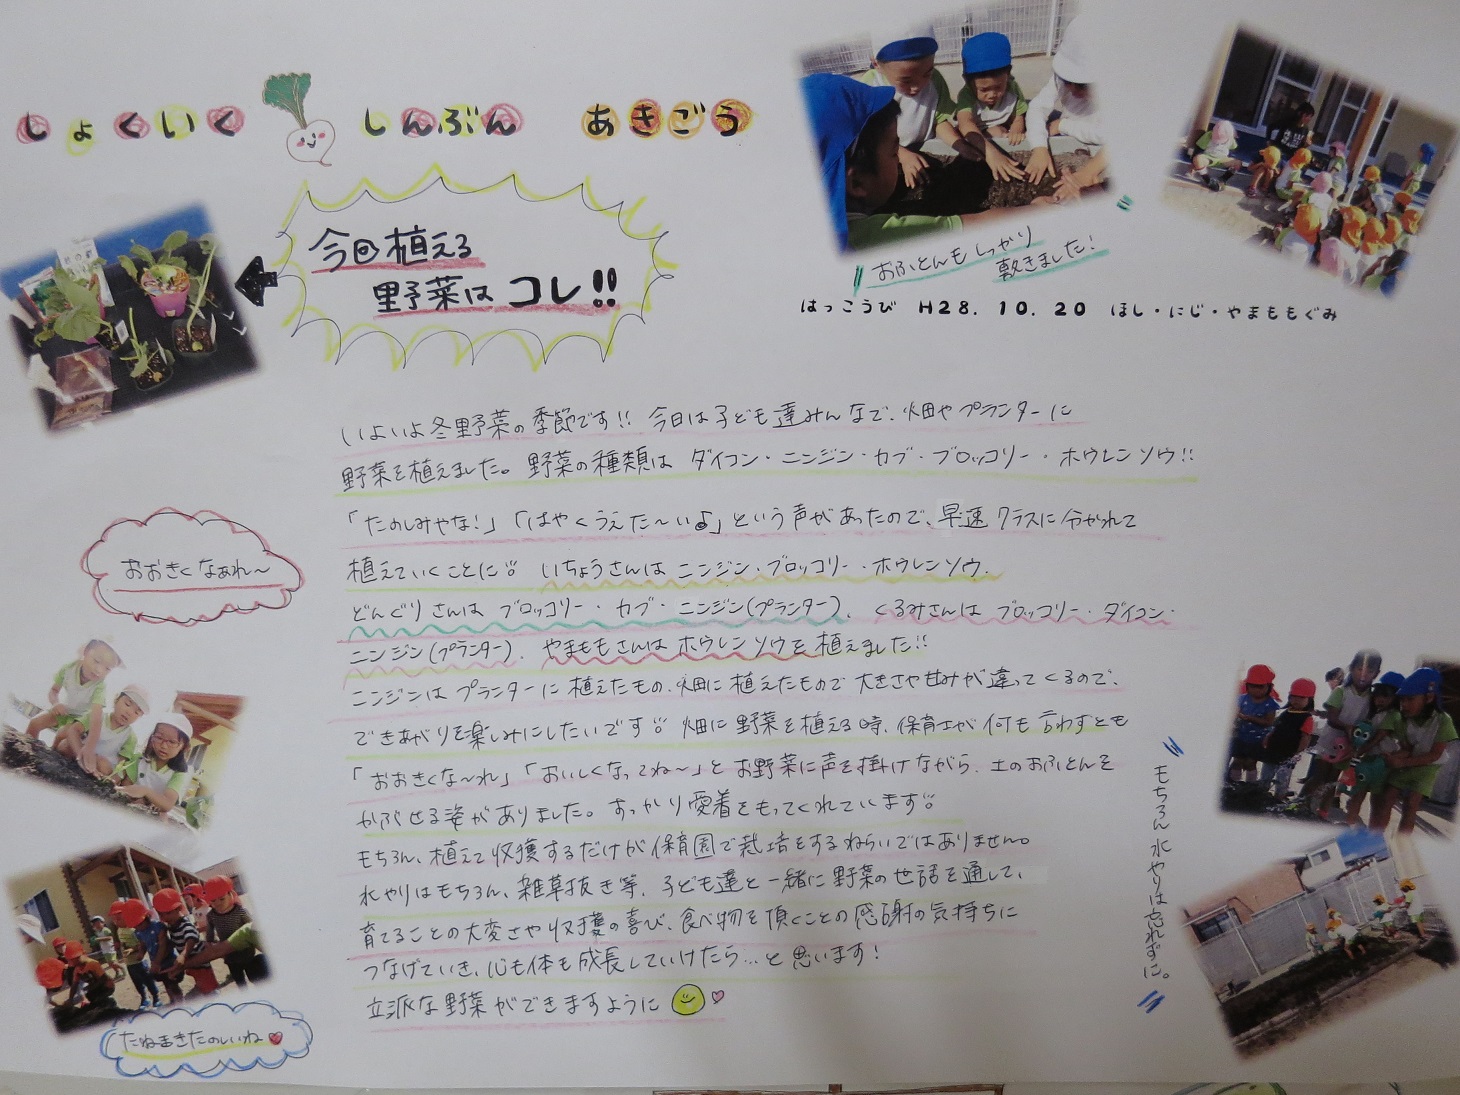 しょくいく しんぶん あきごう
今回植える
野菜はコレ!!
おふとんもしっかり
敷きました!
はっこうび H28.10.20 ほし・にじ・やまももぐみ
いよいよ冬野菜の季節です!! 今日は子ども達みんなで、畑やプランターに
野菜を植えました。野菜の種類は ダイコン・ニンジン・カブ・ブロッコリー・ホウレンソウ!!
「たのしみやな!」「はやくうえた〜い♪」という声があったので、早速クラスに分かれて
植えていくことに!! いちょうさんは ニンジン・ブロッコリー・ホウレンソウ、
どんぐりさんは ブロッコリー・カブ・ニンジン(プランター)、くるみさんは ブロッコリー・ダイコン・
ニンジン(プランター)、やまももさんはホウレンソウを植えました!!
ニンジンはプランターに植えたもの、畑に植えたもので大きさや甘みが違ってくるので、
できあがりを楽しみにしたいです!! 畑に野菜を植える時、保育士が何も言わずとも
「おおきくな〜れ」「おいしくなってね〜」とお野菜に声を掛けながら、土のおふとんを
かぶせる姿がありました。すっかり愛着をもってくれています!!
もちろん、植えて収穫するだけが保育園で栽培をするねらいではありません。
水やりはもちろん、雑草抜き等、子ども達と一緒に野菜の世話を通して、
育てることの大変さや収穫の喜び、食べ物を頂くことの感謝の気持ちに
つなげていき、心も体も成長していけたら…と思います!
立派な野菜ができますように
おおきくなぁれ〜
たねまきたのしいね
もちろん水やりは忘れずに。